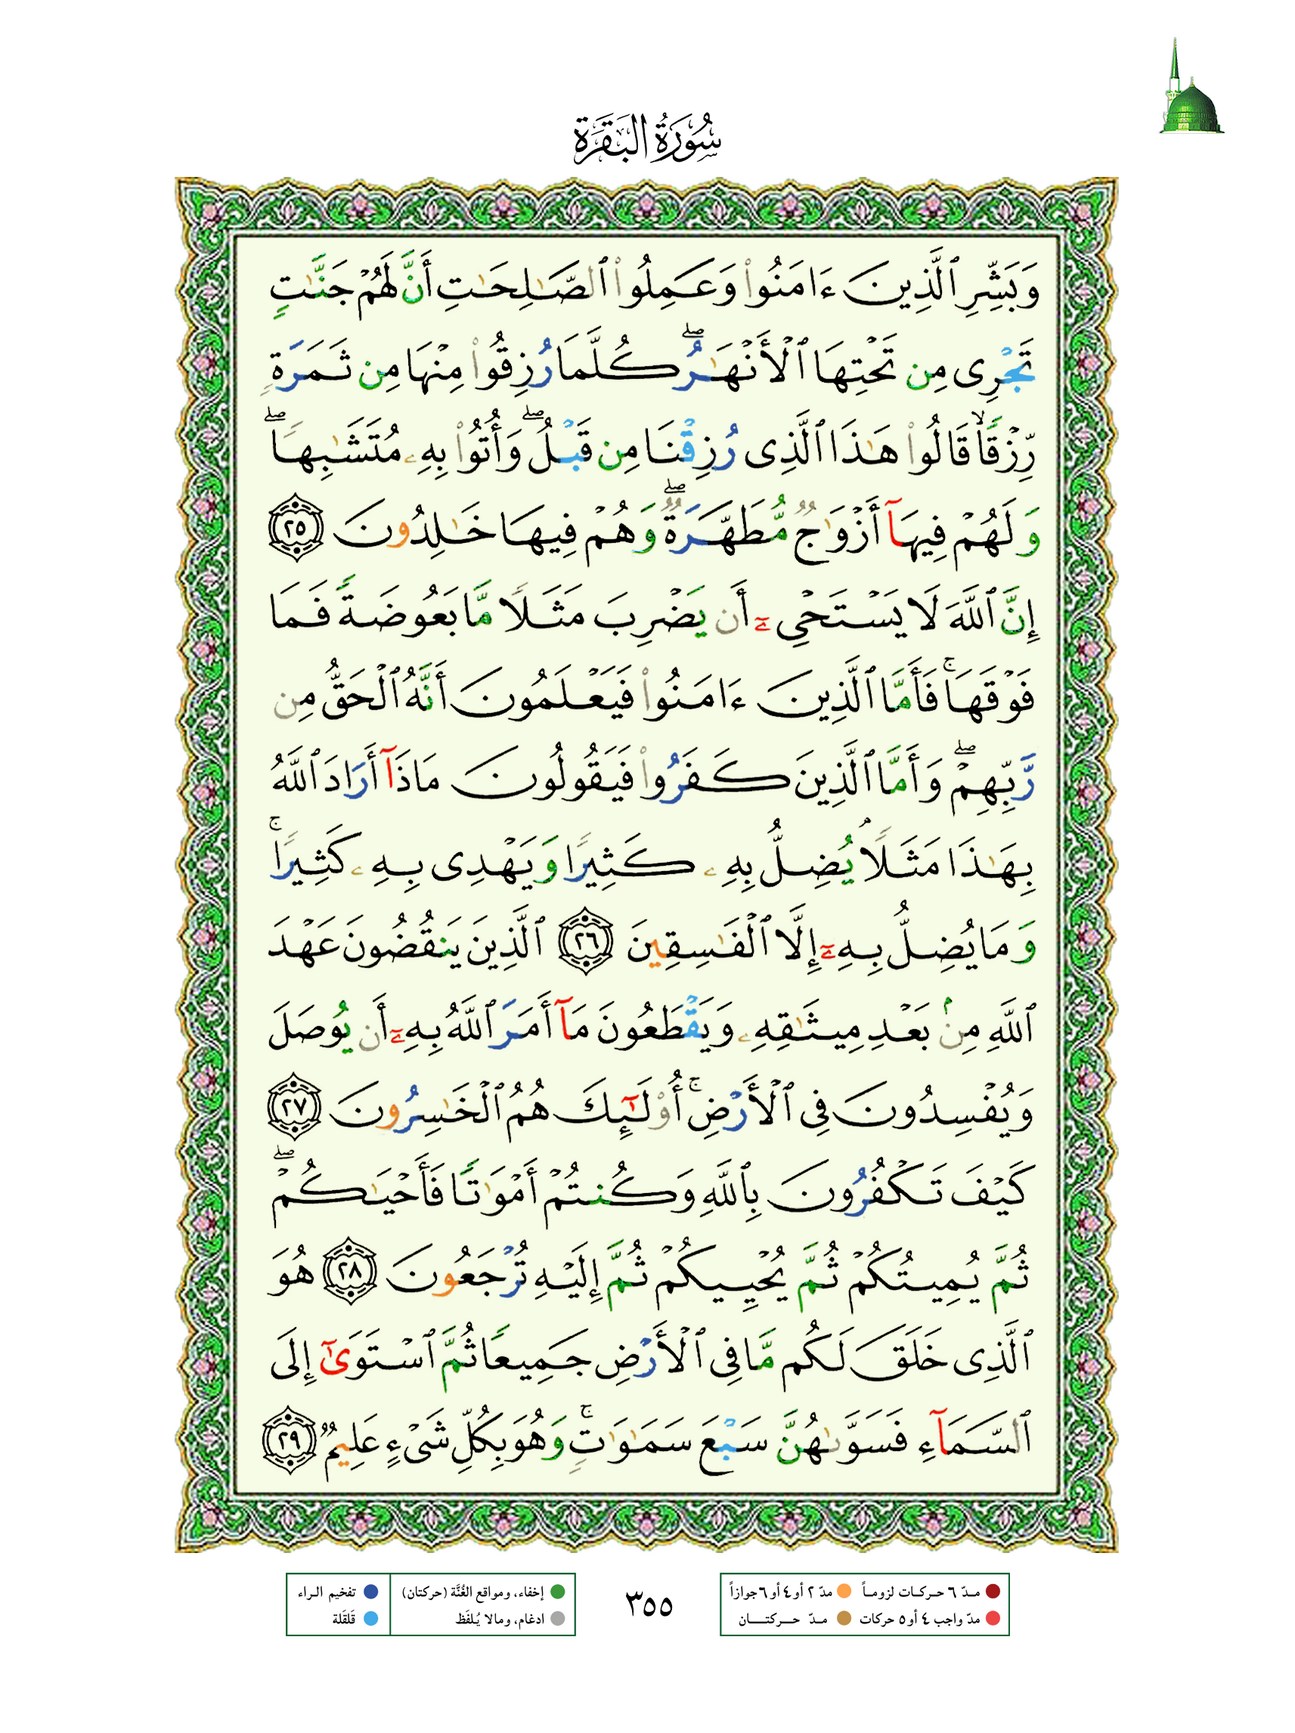 سُورَةُ البَقَرَة
وَبَشِّرِ ٱلَّذِينَ ءَامَنُوا۟ وَعَمِلُوا۟ ٱلصَّـٰلِحَـٰتِ أَنَّ لَهُمْ جَنَّـٰتٍ
تَجْرِى مِن تَحْتِهَا ٱلْأَنْهَـٰرُ ۖ كُلَّمَا رُزِقُوا۟ مِنْهَا مِن ثَمَرَةٍ
رِّزْقًا ۙ قَالُوا۟ هَـٰذَا ٱلَّذِى رُزِقْنَا مِن قَبْلُ ۖ وَأُتُوا۟ بِهِۦ مُتَشَـٰبِهًا ۖ
وَلَهُمْ فِيهَآ أَزْوَٰجٌ مُّطَهَّرَةٌ ۖ وَهُمْ فِيهَا خَـٰلِدُونَ ٢٥
إِنَّ ٱللَّهَ لَا يَسْتَحْىِۦٓ أَن يَضْرِبَ مَثَلًا مَّا بَعُوضَةً فَمَا
فَوْقَهَا ۚ فَأَمَّا ٱلَّذِينَ ءَامَنُوا۟ فَيَعْلَمُونَ أَنَّهُ ٱلْحَقُّ مِن
رَّبِّهِمْ ۖ وَأَمَّا ٱلَّذِينَ كَفَرُوا۟ فَيَقُولُونَ مَاذَآ أَرَادَ ٱللَّهُ
بِهَـٰذَا مَثَلًا ۘ يُضِلُّ بِهِۦ كَثِيرًا وَيَهْدِى بِهِۦ كَثِيرًا ۚ
وَمَا يُضِلُّ بِهِۦٓ إِلَّا ٱلْفَـٰسِقِينَ ٢٦ ٱلَّذِينَ يَنقُضُونَ عَهْدَ
ٱللَّهِ مِنۢ بَعْدِ مِيثَـٰقِهِۦ وَيَقْطَعُونَ مَآ أَمَرَ ٱللَّهُ بِهِۦٓ أَن يُوصَلَ
وَيُفْسِدُونَ فِى ٱلْأَرْضِ ۚ أُو۟لَـٰٓئِكَ هُمُ ٱلْخَـٰسِرُونَ ٢٧
كَيْفَ تَكْفُرُونَ بِٱللَّهِ وَكُنتُمْ أَمْوَٰتًا فَأَحْيَـٰكُمْ ۖ
ثُمَّ يُمِيتُكُمْ ثُمَّ يُحْيِيكُمْ ثُمَّ إِلَيْهِ تُرْجَعُونَ ٢٨ هُوَ
ٱلَّذِى خَلَقَ لَكُم مَّا فِى ٱلْأَرْضِ جَمِيعًا ثُمَّ ٱسْتَوَىٰٓ إِلَى
ٱلسَّمَآءِ فَسَوَّىٰهُنَّ سَبْعَ سَمَـٰوَٰتٍ ۚ وَهُوَ بِكُلِّ شَىْءٍ عَلِيمٌ ٢٩
مدّ ٦ حركات لزوماً مدّ ٢ أو ٤ أو ٦ جوازاً
مدّ واجب ٤ أو ٥ حركات مدّ حركتان
٣٥٥
إخفاء، ومواقع الغُنَّة (حركتان) تفخيم الراء
ادغام، ومالا يُلفَظ قلقَلة